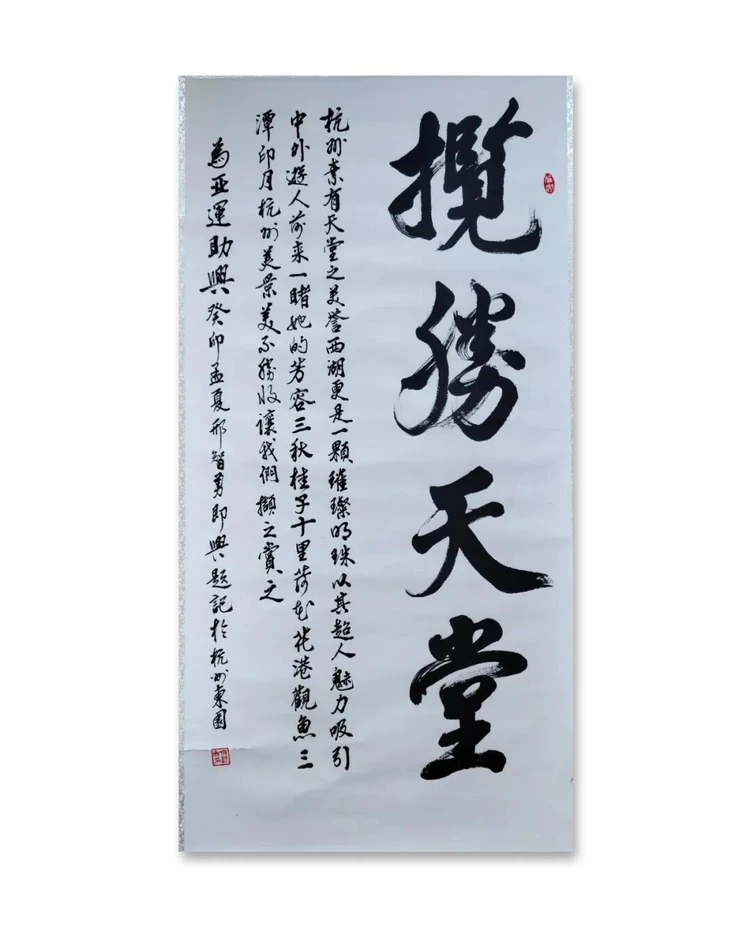 攬勝天堂
杭州素有天堂之美誉西湖更是一顆璀璨明珠以其超人魅力吸引
中外遊人前来一睹她的芳容三秋桂子十里荷花花港觀魚三
潭印月杭州美景美不勝收讓我們擷之賞之
為亚運助興癸卯孟夏邢智勇即興题記於杭州東園